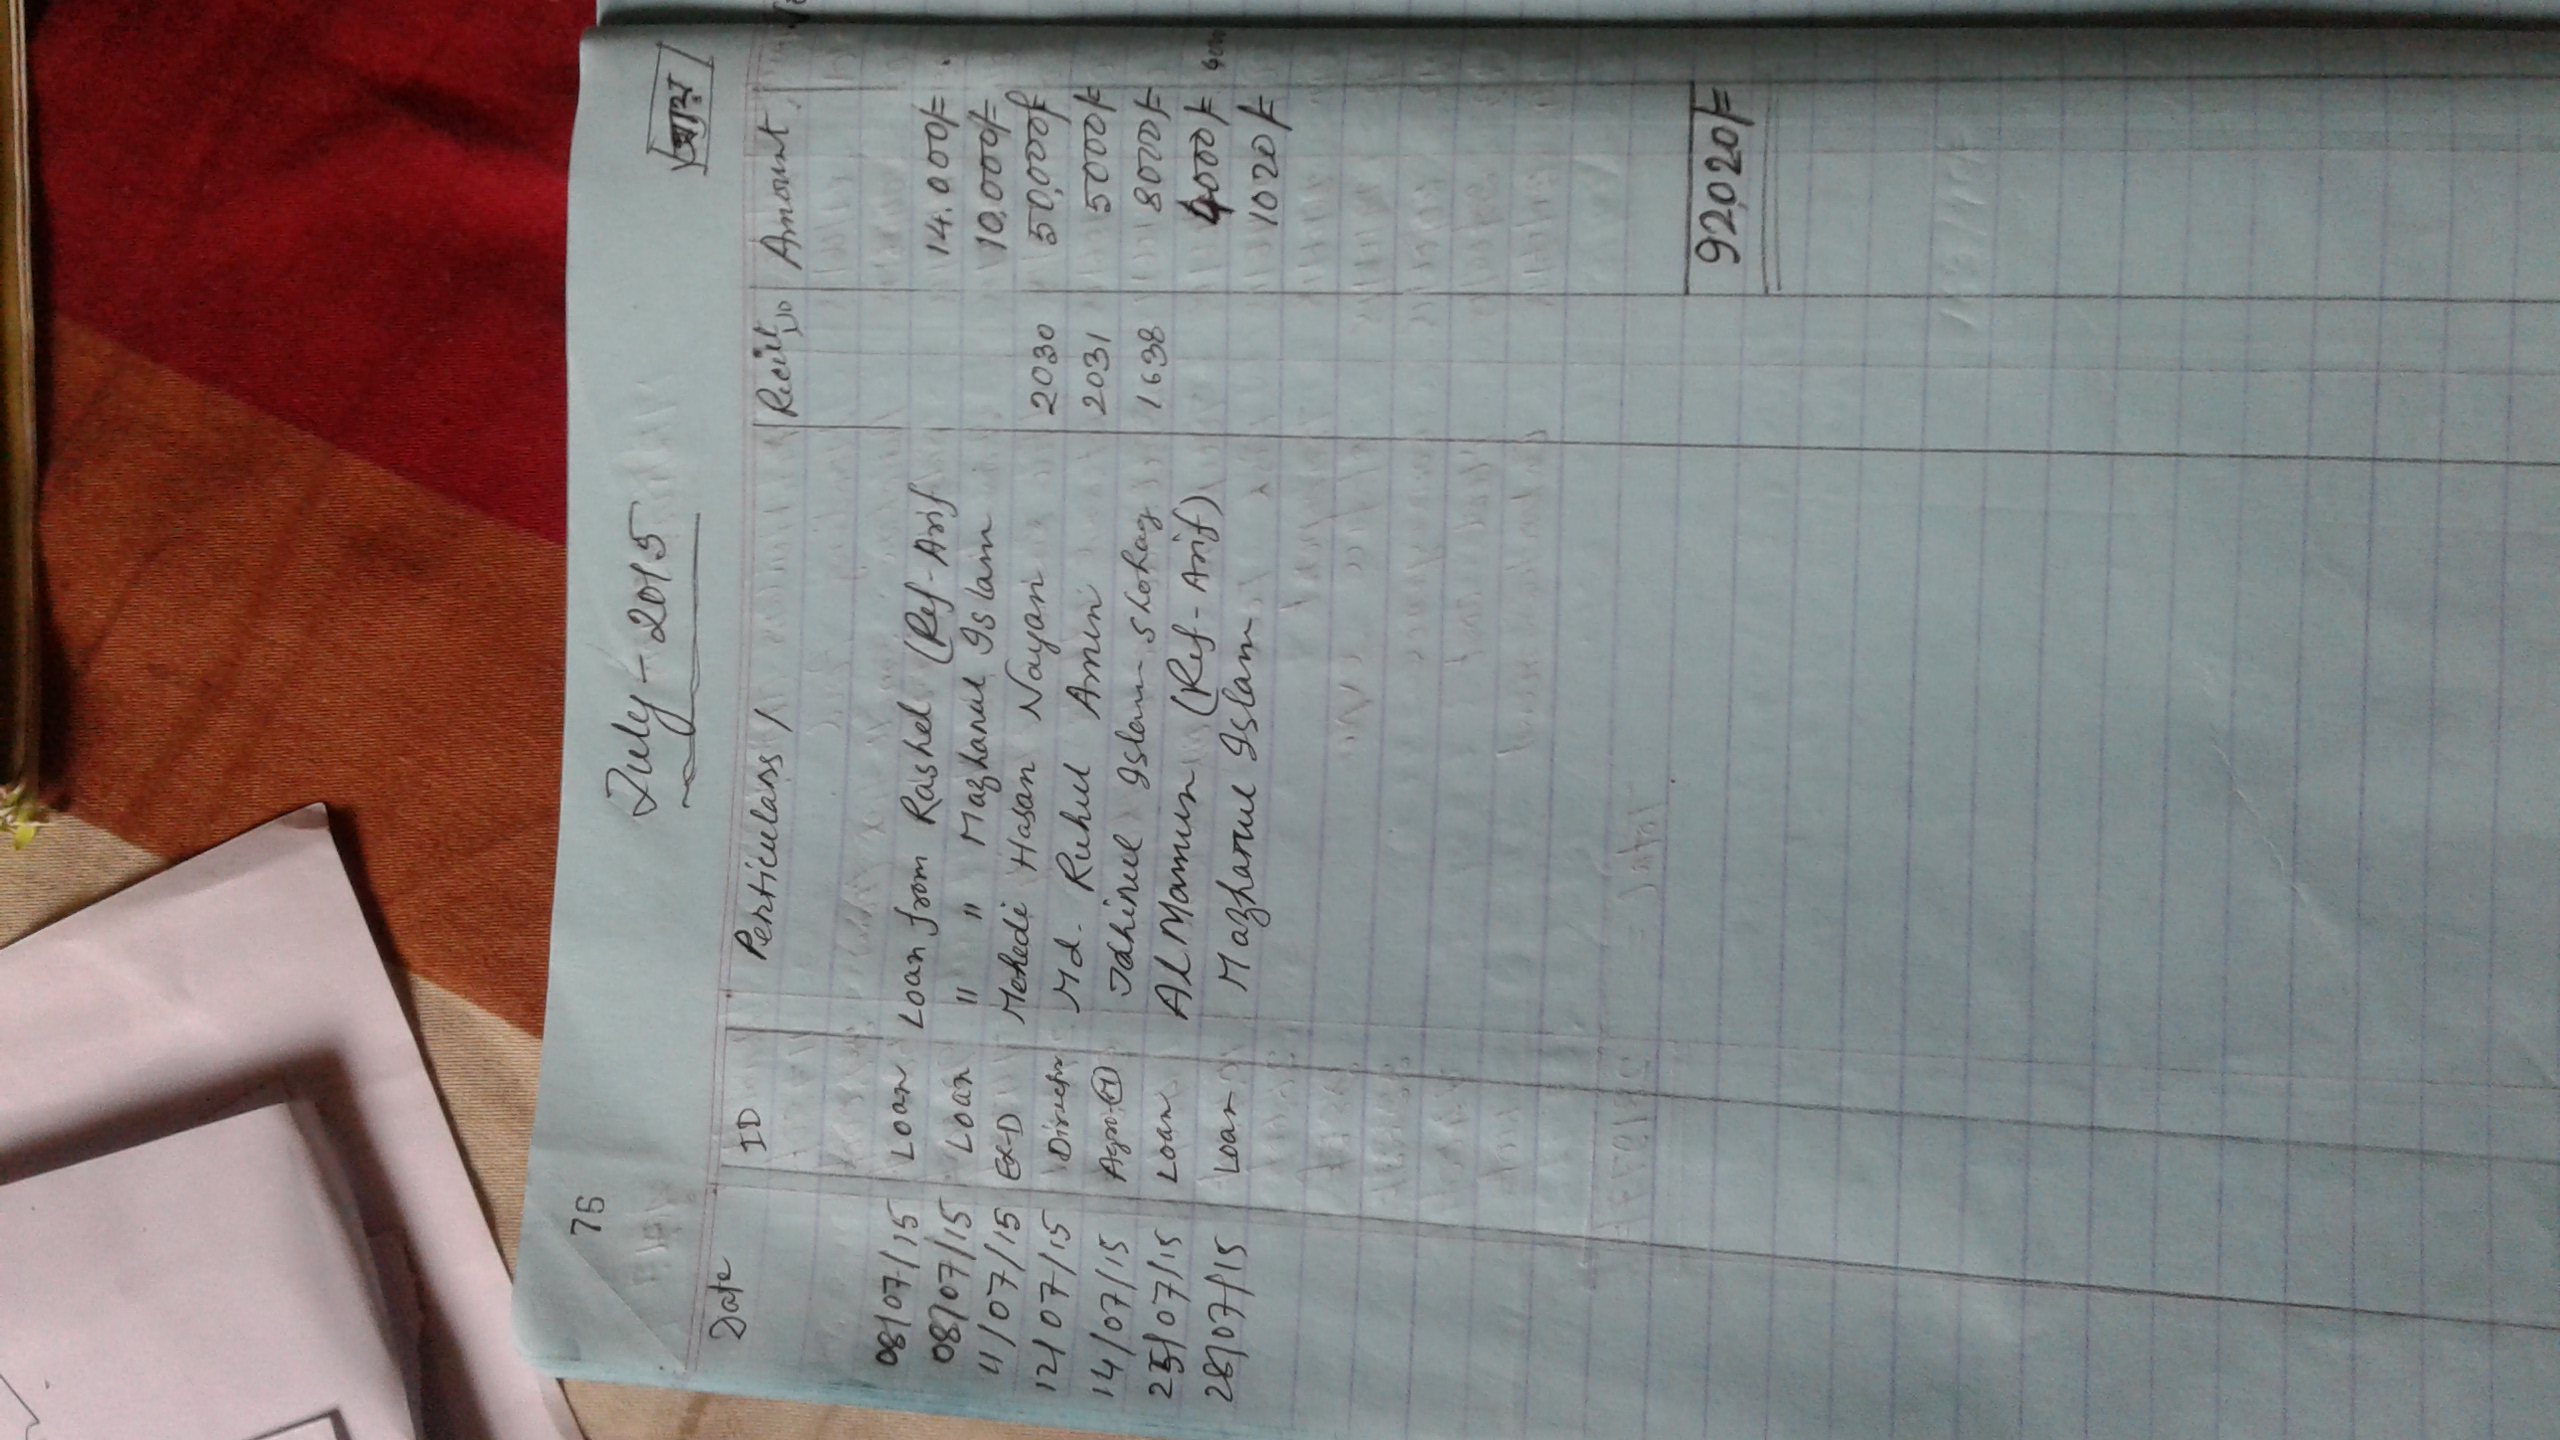 76
July - 2015
আয়
Date ID Perticulars / Recict No Amount
08/07/15 Loan Loan from Rashel (Ref-Arif 14.000/=
08/07/15 Loan " " Mazharul Islam 10,000/=
11/07/15 EX-D Mehedi Hasan Nayan 2030 50,000/=
12/07/15 Director Md. Ruhul Amin 2031 5000/=
14/07/15 Agro-(M) Islam Shohag 1638 8000/=
25/07/15 Loan Al Mamun (Ref-Arif) 4000/= 4000
28/07/15 Loan Mazharul Islam 1020/=
92,020/=